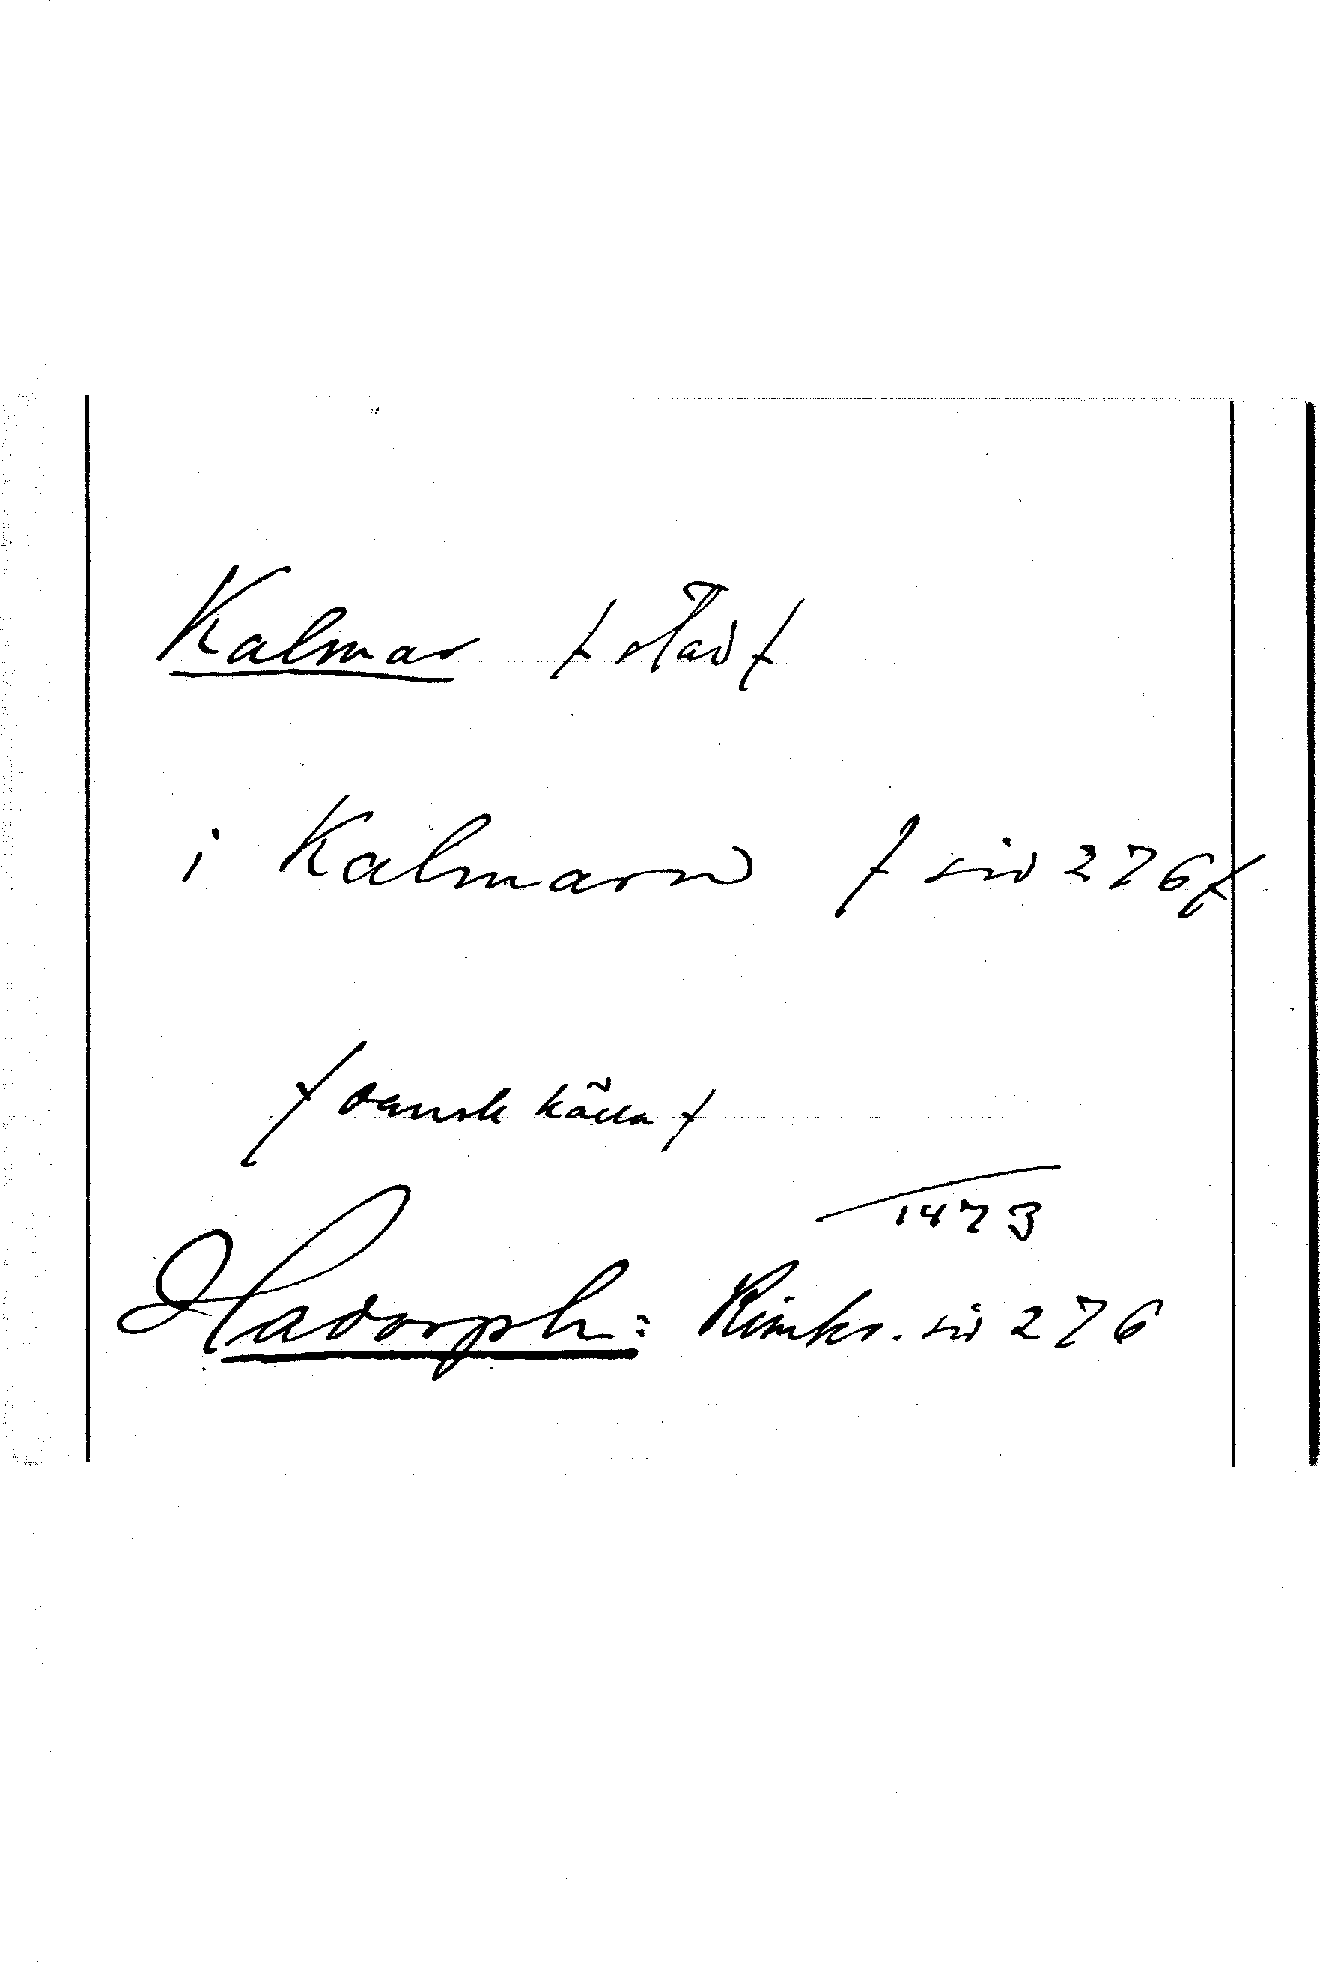 Kalmar / stad /
i Kalmarn / sid 276 /
/ dansk källa /
1473
Hadorph: Rimkr. sid 276